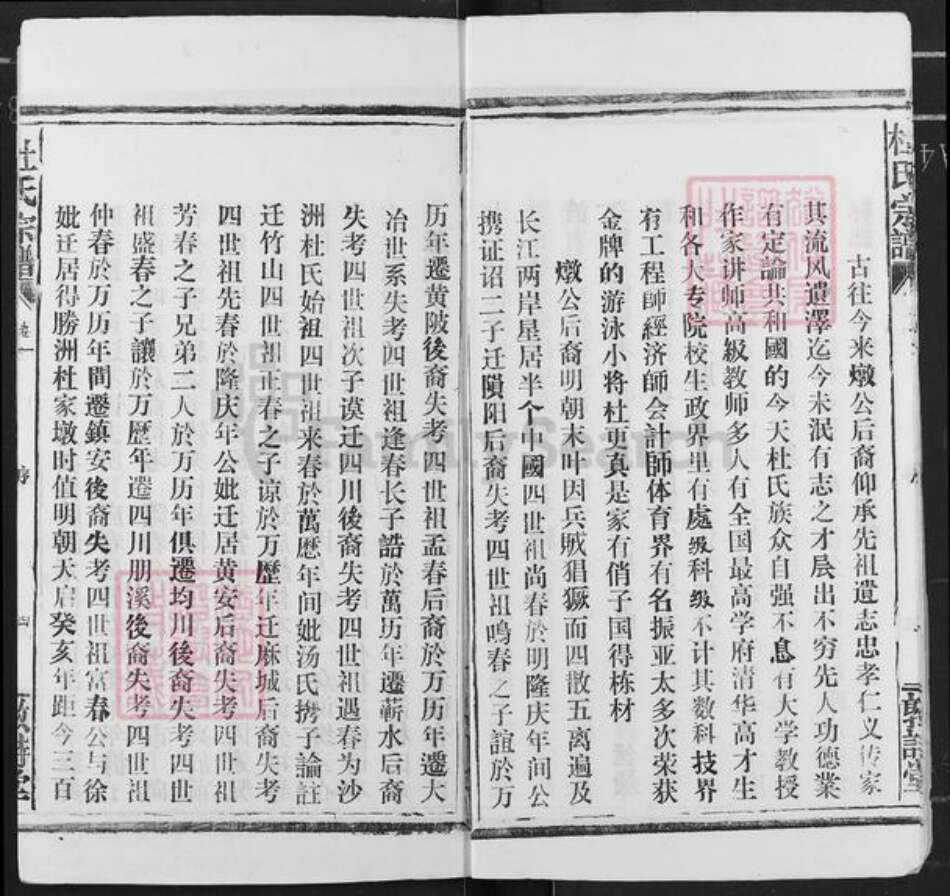 杜氏宗譜
古往今来燉公后裔仰承先祖遺志忠孝仁义传家
其流风遺澤迄今未泯有志之才辰出不穷先人功德業
有定論共和國的今天杜氏族众自强不息有大学教授
作家讲师高級教师多人有全国最高学府清华高才生
和各大专院校生政界里有處级科级不计其数科技界
有工程師經济師会計師体育界有名振亚太多次荣获
金牌的游泳小将杜更真是家有俏子国得栋材
燉公后裔明朝末叶因兵贼猖獗而四散五离遍及
长江两岸星居半个中國四世祖尚春於明隆庆年间公
携证诏二子迁陨阳后裔失考四世祖鳴春之子誼於万
历年遷黄陂後裔失考四世祖孟春后裔於万历年遷大
冶世系失考四世祖逢春长子誥於萬历年遷蕲水后裔
失考四世祖次子谟迁四川後裔失考四世祖遇春为沙
洲杜氏始祖四世祖来春於萬歷年间妣汤氏携子論註
迁竹山四世祖正春之子谅於万歷年迁麻城后裔失考
四世祖先春於隆庆年公妣迁居黄安后裔失考四世祖
芳春之子兄弟二人於万历年俱遷均川後裔失考四世
祖盛春之子讓於万歷年遷四川朋溪後裔失考四世祖
仲春於万历年間遷鎮安後裔失考四世祖富春公与徐
妣迁居得勝洲杜家墩时值明朝天启癸亥年距今三百
杜氏宗譜
卷一
序
四
FamilySearch